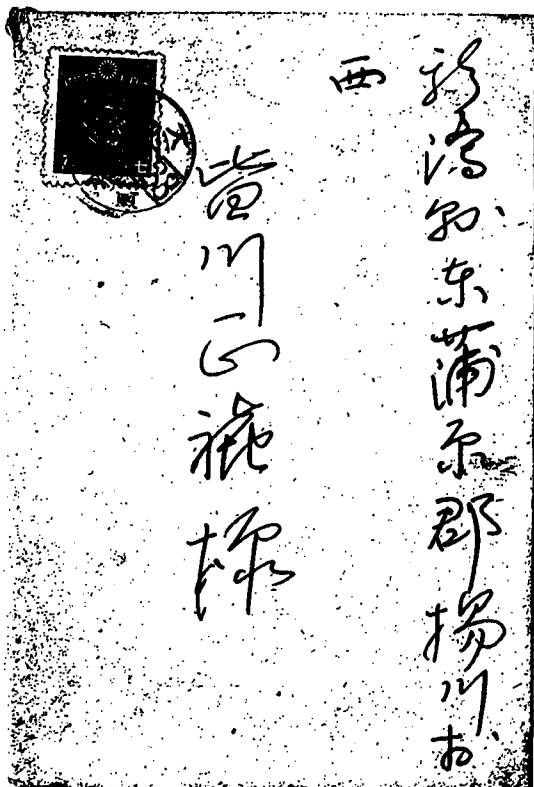 新潟縣東蒲原郡揚川村
西
皆川正禧様